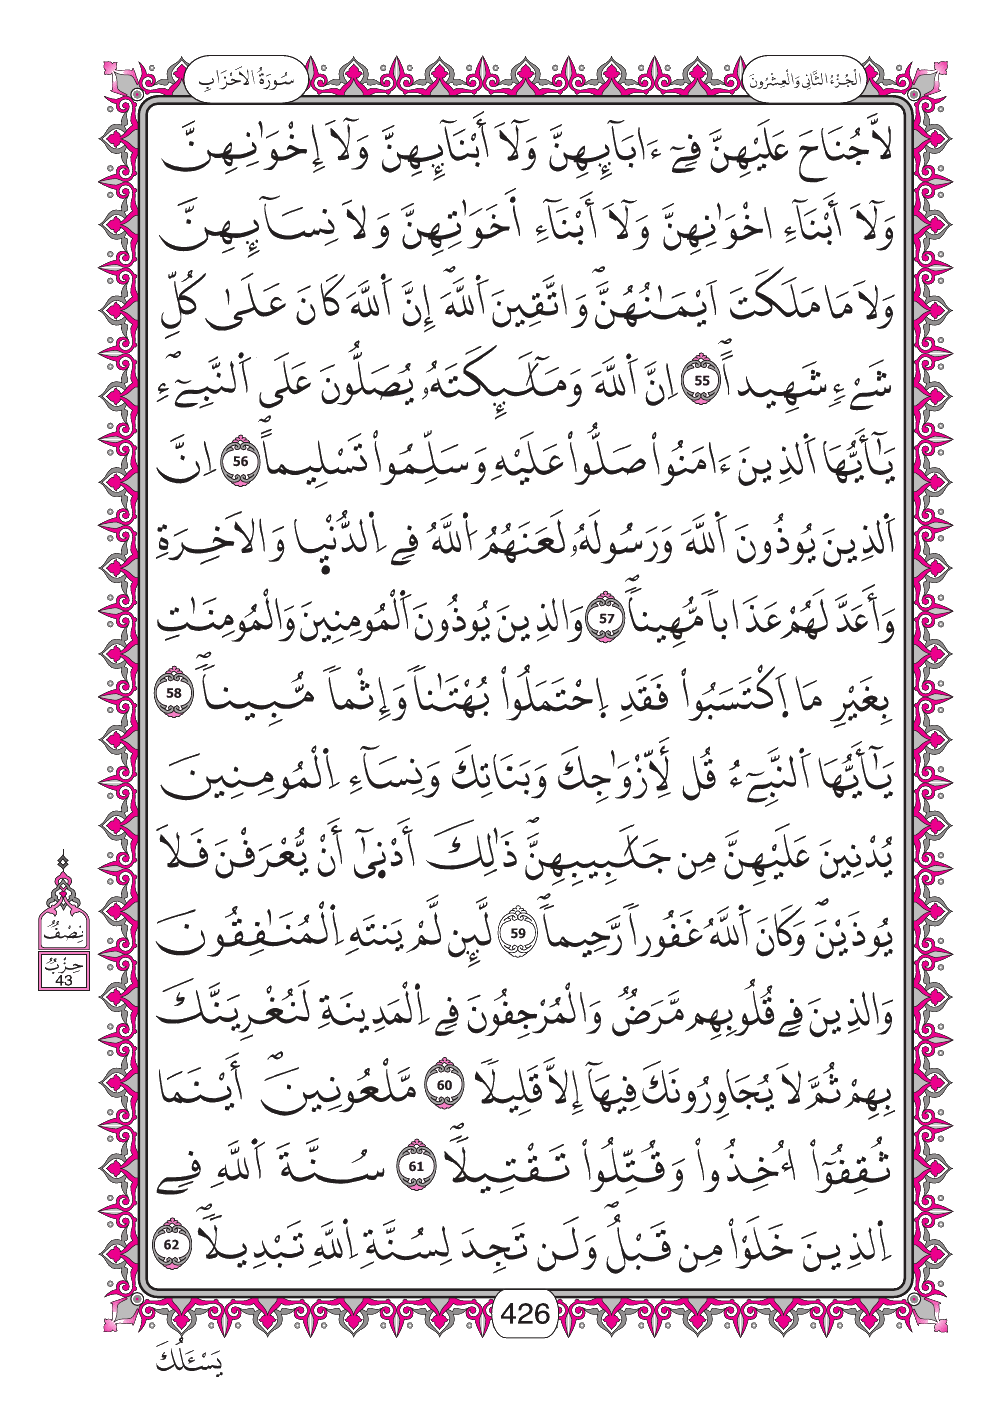 سُورَةُ الاَحْزَابِ
الْجُزْءُ الثَّانِي وَالْعِشْرُونَ
لاَّ جُنَاحَ عَلَيْهِنَّ فِےٓ ءَابَآئِهِنَّ وَلَآ أَبْنَآئِهِنَّ وَلَآ إِخْوَٰنِهِنَّ
وَلَآ أَبْنَآءِ اخْوَٰنِهِنَّ وَلَآ أَبْنَآءِ اَ۬خَوَٰتِهِنَّ وَلاَ نِسَآئِهِنَّ
وَلاَ مَا مَلَكَتَ اَيْمَٰنُهُنَّۖ وَاتَّقِينَ اَ۬للَّهَۖ إِنَّ اَ۬للَّهَ كَانَ عَلَىٰ كُلِّ
شَےْءٖ شَهِيداًۖ 55 اِنَّ اَ۬للَّهَ وَمَلَٰٓئِكَتَهُۥ يُصَلُّونَ عَلَى اَ۬لنَّبِےٓءِۖ
يَٰٓأَيُّهَا اَ۬لذِينَ ءَامَنُواْ صَلُّواْ عَلَيْهِ وَسَلِّمُواْ تَسْلِيماًۖ 56 اِنَّ
اَ۬لذِينَ يُوذُونَ اَ۬للَّهَ وَرَسُولَهُۥ لَعَنَهُمُ اُ۬للَّهُ فِے اِ۬لدُّنْي۪ا وَالاَخِرَةِ
وَأَعَدَّ لَهُمْ عَذَاباٗ مُّهِيناٗۖ 57 وَالذِينَ يُوذُونَ اَ۬لْمُومِنِينَ وَالْمُومِنَٰتِ
بِغَيْرِ مَا اَ۪كْتَسَبُواْ فَقَدِ اِ۪حْتَمَلُواْ بُهْتَٰناٗ وَإِثْماٗ مُّبِيناٗۖ 58
يَٰٓأَيُّهَا اَ۬لنَّبِےٓءُ قُل لِّأَزْوَٰجِكَ وَبَنَاتِكَ وَنِسَآءِ اِ۬لْمُومِنِينَ
يُدْنِينَ عَلَيْهِنَّ مِن جَلَٰبِيبِهِنَّۖ ذَٰلِكَ أَدْن۪يٰٓ أَنْ يُّعْرَفْنَ فَلاَ
يُوذَيْنَۖ وَكَانَ اَ۬للَّهُ غَفُوراٗ رَّحِيماٗۖ 59 لَّئِن لَّمْ يَنتَهِ اِ۬لْمُنَٰفِقُونَ
وَالذِينَ فِے قُلُوبِهِم مَّرَضٞ وَالْمُرْجِفُونَ فِے اِ۬لْمَدِينَةِ لَنُغْرِيَنَّكَ
بِهِمْ ثُمَّ لاَ يُجَاوِرُونَكَ فِيهَآ إِلاَّ قَلِيلاٗ 60 مَّلْعُونِينَۖ أَيْنَمَا
ثُقِفُوٓاْ أُخِذُواْ وَقُتِّلُواْ تَقْتِيلاٗۖ 61 سُنَّةَ اَ۬للَّهِ فِے
اِ۬لذِينَ خَلَوْاْ مِن قَبْلُۖ وَلَن تَجِدَ لِسُنَّةِ اِ۬للَّهِ تَبْدِيلاٗۖ 62
نِصْفُ
حِزْبُ
43
426
يَسْـَٔلُكَ